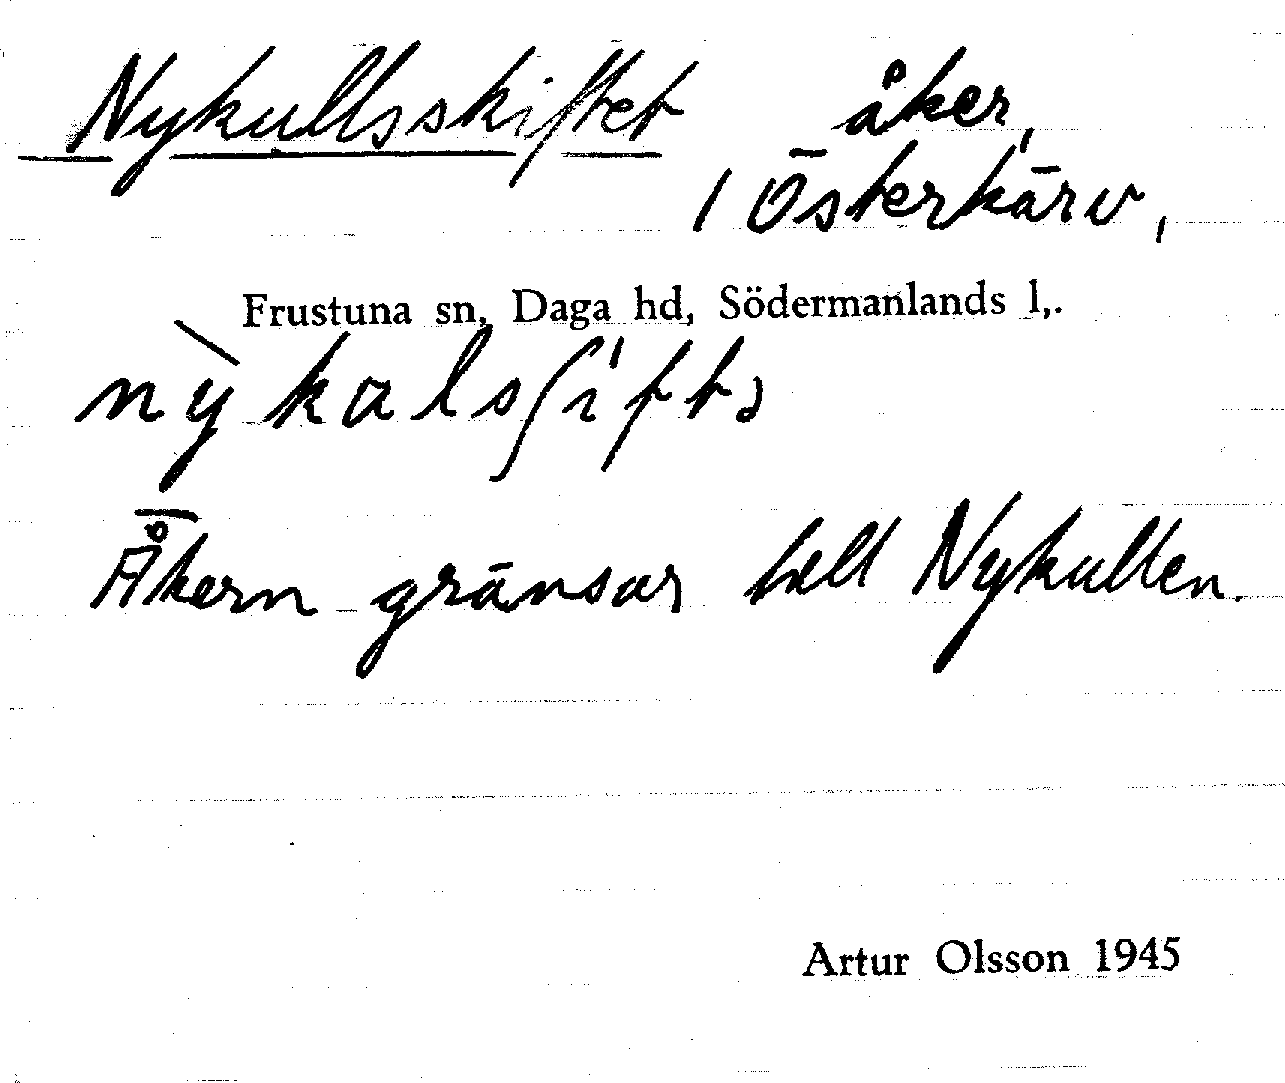 Nykullsskiftet åker,
/ Österkärv,
Frustuna sn, Daga hd, Södermanlands l,.
nỳkalsʃiftɔ
Åkern gränsar till Nykullen.
Artur Olsson 1945